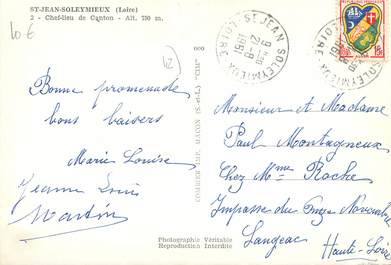 ST-JEAN-SOLEYMIEUX (Loire)
2 - Chef-lieu de Canton - Alt. 730 m.
10 €
42
000
COMBIER IMP. MACON (S.-et-L.) "CIM"
Bonne promenade
bons baisers
Marie Louise
Jeanne Louis
Martin
Photographie Véritable
Reproduction Interdite
ST JEAN SOLEYMIEUX
LOIRE
2-8
1961
Monsieur et Madame
Paul Montagneux
Chez Mme Roche
Impasse du Onze Novembre
Langeac
Haute-Loire